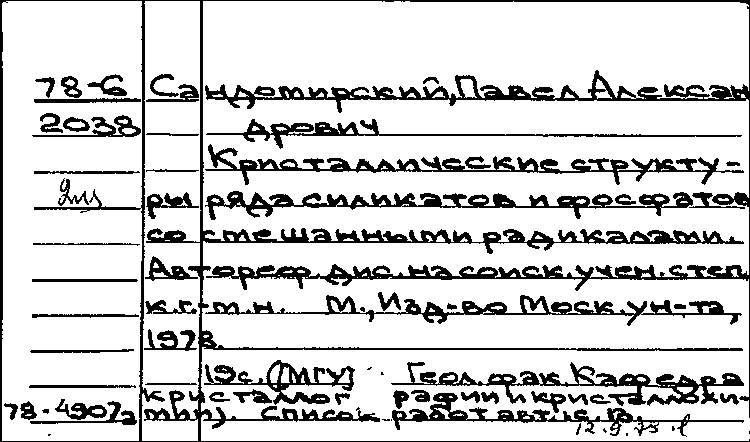 78-6 Сандомирский, Павел Алексан
2038 дрович
Кристаллические структу-
ры ряда силикатов и фосфатов
со смешанными радикалами.
Автореф. дис. на соиск. учен. степ.
к.г.-м.н. М., Изд-во Моск. ун-та,
1978.
19с. (МГУ] Геол. фак. Кафедра
кристаллог рафии и кристаллохи-
78-4907а мии). Список работ авт.:с.